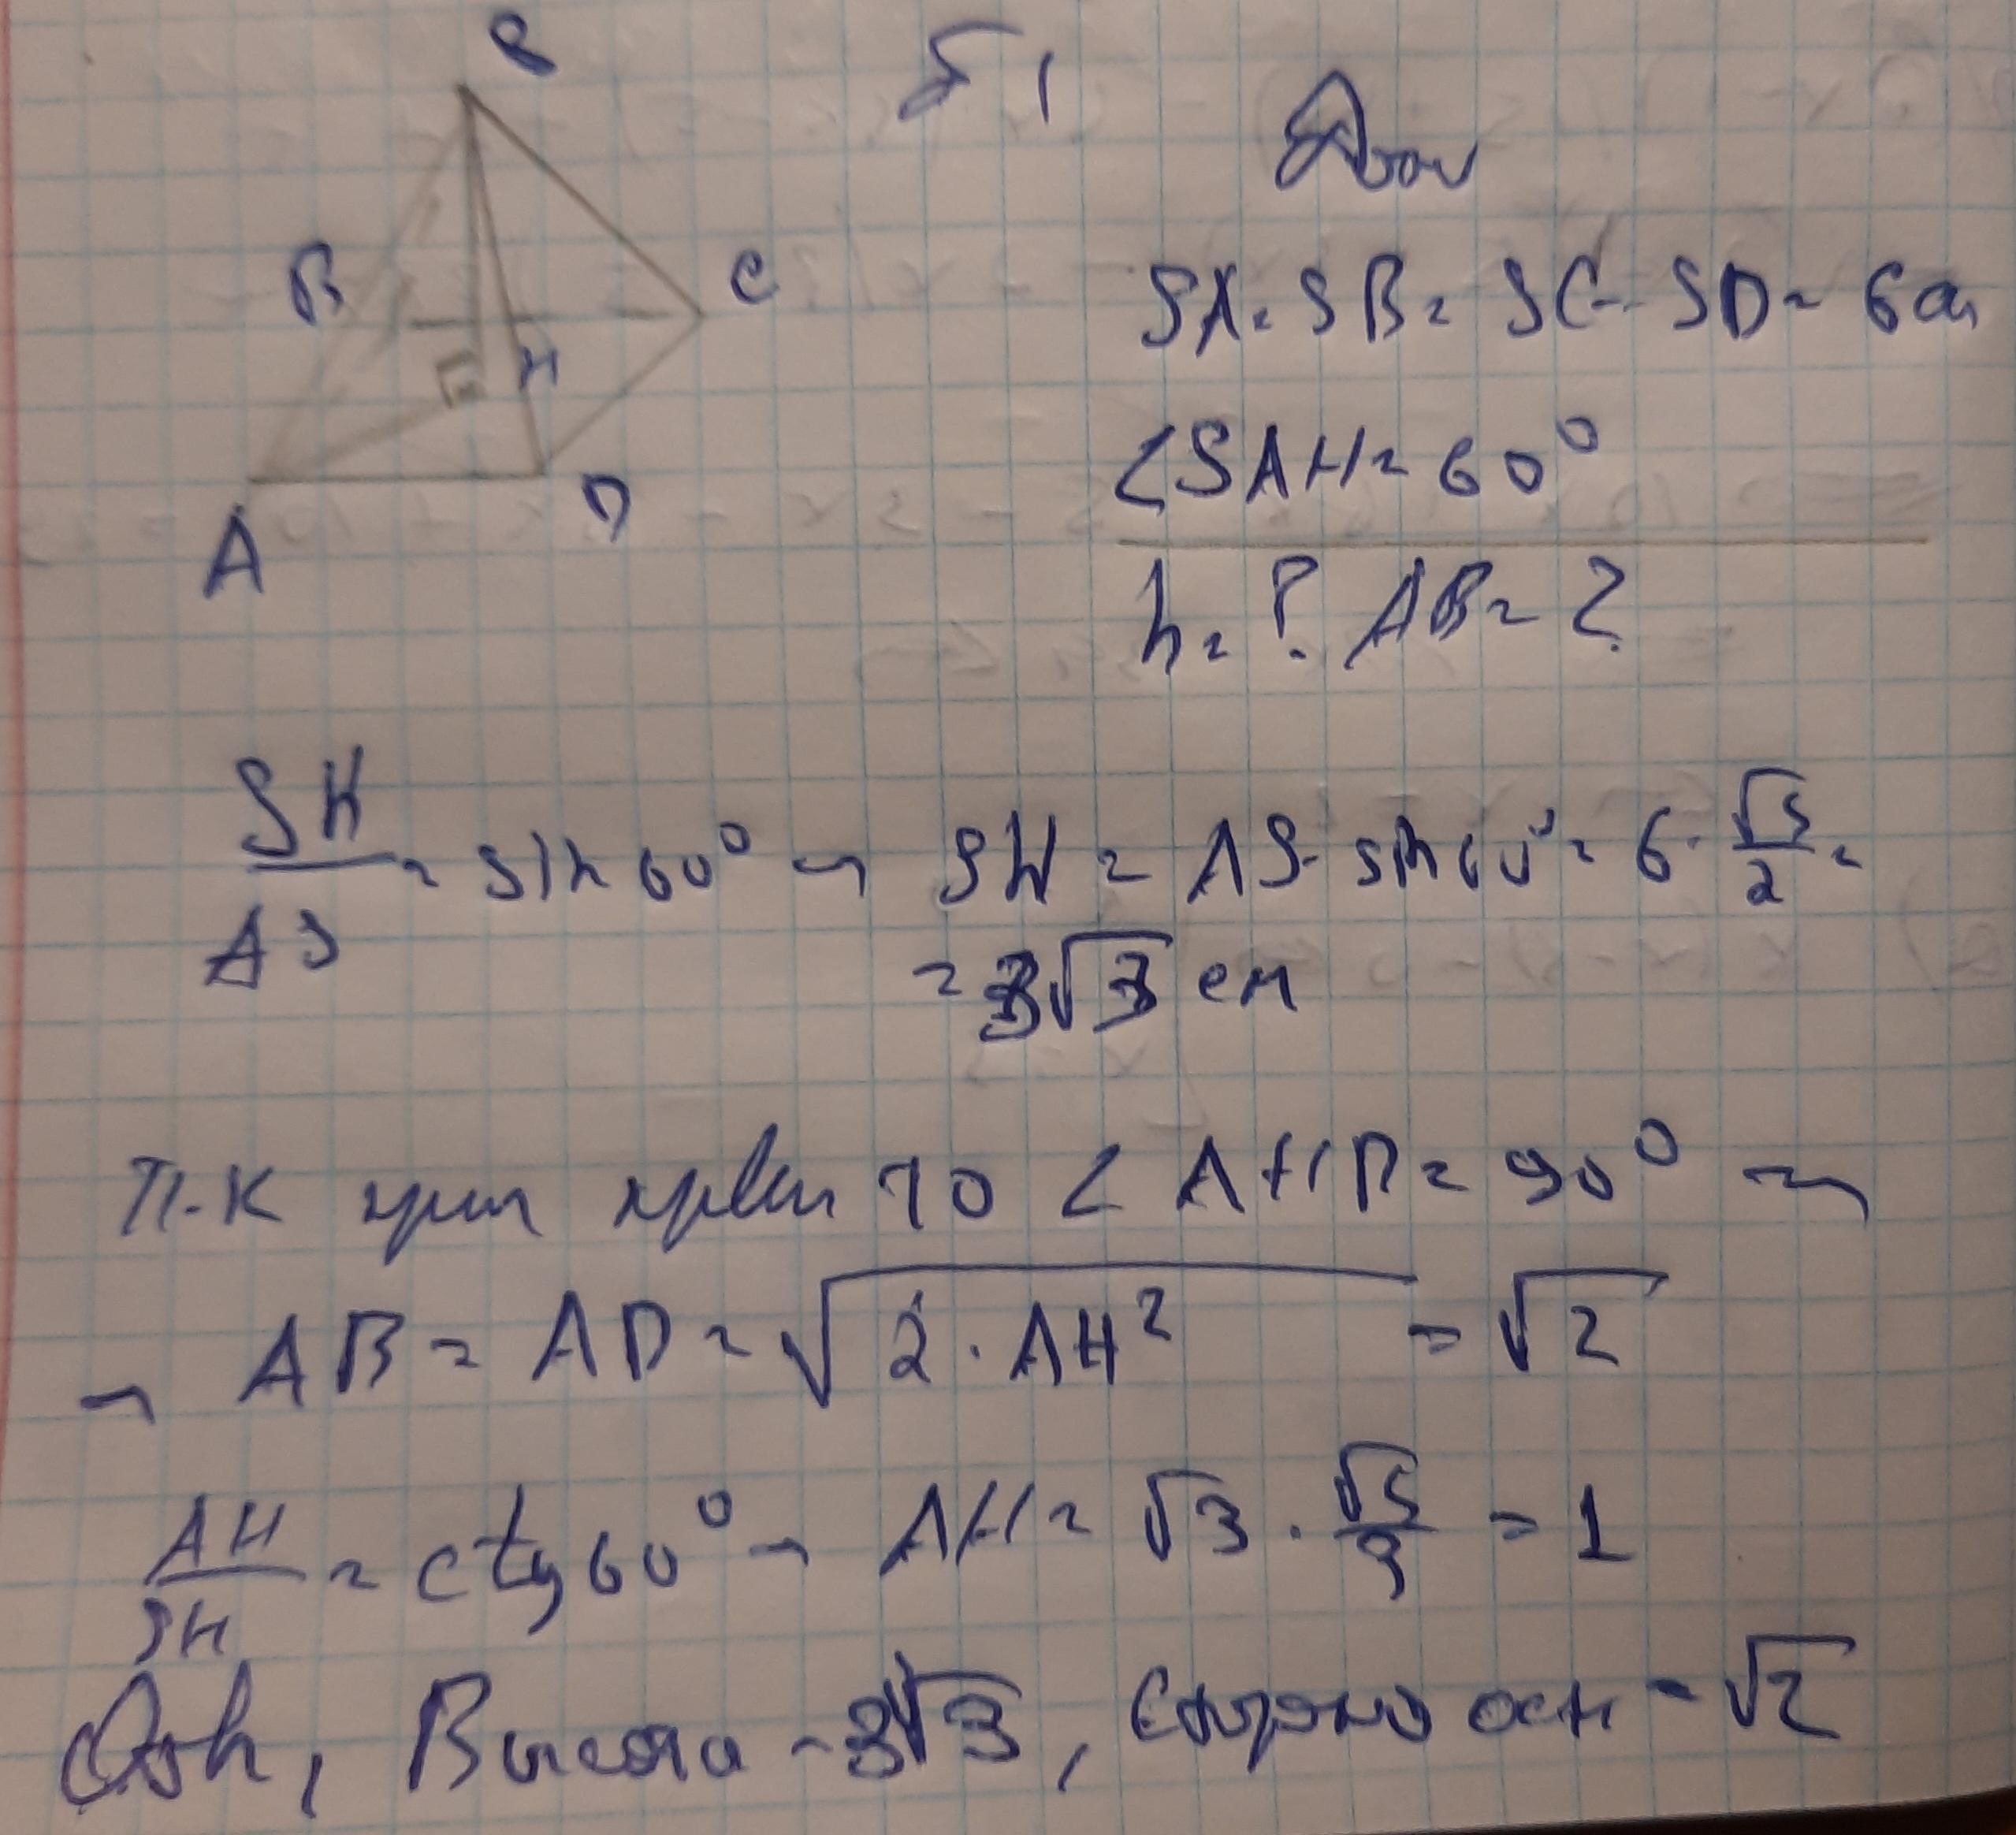 S
Б 1
Дано
B
C
SA = SB = SC = SD = 6 см
H
∠SAH = 60°
A
D
h = ? AB = ?
SH/AS = sin 60° → SH = AS · sin 60° = 6 · √3/2 =
= 3√3 см
Т.к прав то ∠ AHD = 90° →
→ AB = AD = √(2 · AH²) = √2
AH/SH = ctg 60° → AH = √3 · √3/3 = 1
Отв, Высота - 3√3, Сторона осн - √2